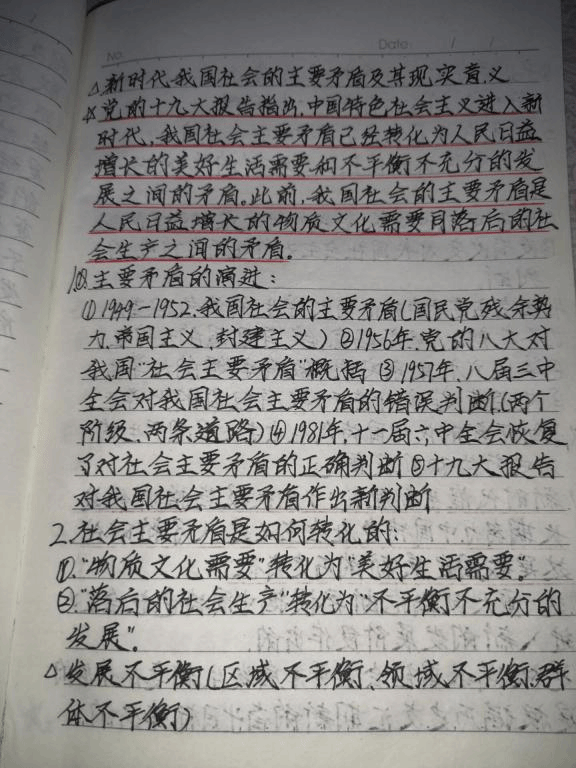 No.
Date: / /
△新时代我国社会的主要矛盾及其现实意义
☆党的十九大报告指出,中国特色社会主义进入新
时代,我国社会主要矛盾已经转化为人民日益
增长的美好生活需要和不平衡不充分的发
展之间的矛盾。此前,我国社会的主要矛盾是
人民日益增长的物质文化需要同落后的社
会生产之间的矛盾。
1.主要矛盾的演进:
①1949-1952.我国社会的主要矛盾(国民党残余势
力.帝国主义.封建主义) ②1956年.党的八大对
我国"社会主要矛盾"概括 ③1957年.八届三中
全会对我国社会主要矛盾的错误判断.(两个
阶级.两条道路)④1981年.十一届六中全会恢复
了对社会主要矛盾的正确判断⑤十九大报告
对我国社会主要矛盾作出新判断
2.社会主要矛盾是如何转化的:
①."物质文化需要"转化为"美好生活需要".
②."落后的社会生产"转化为"不平衡不充分的
发展".
△发展不平衡(区域不平衡.领域不平衡.群
体不平衡)